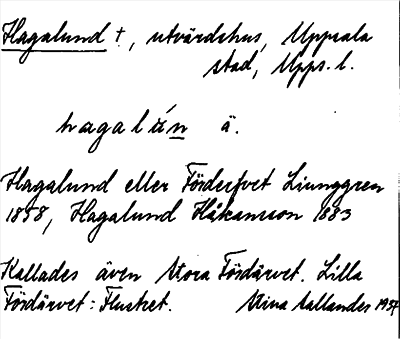 Hagalund †, utvärdshus, Uppsala
stad, Upps. l.
hagalún ä.
Hagalund eller Förderfvet Liunggren
1858, Hagalund Håkansson 1883
Kallades även Stora Fördärvet. Lilla
Fördärvet: Flustret. Stina Sallander 1957